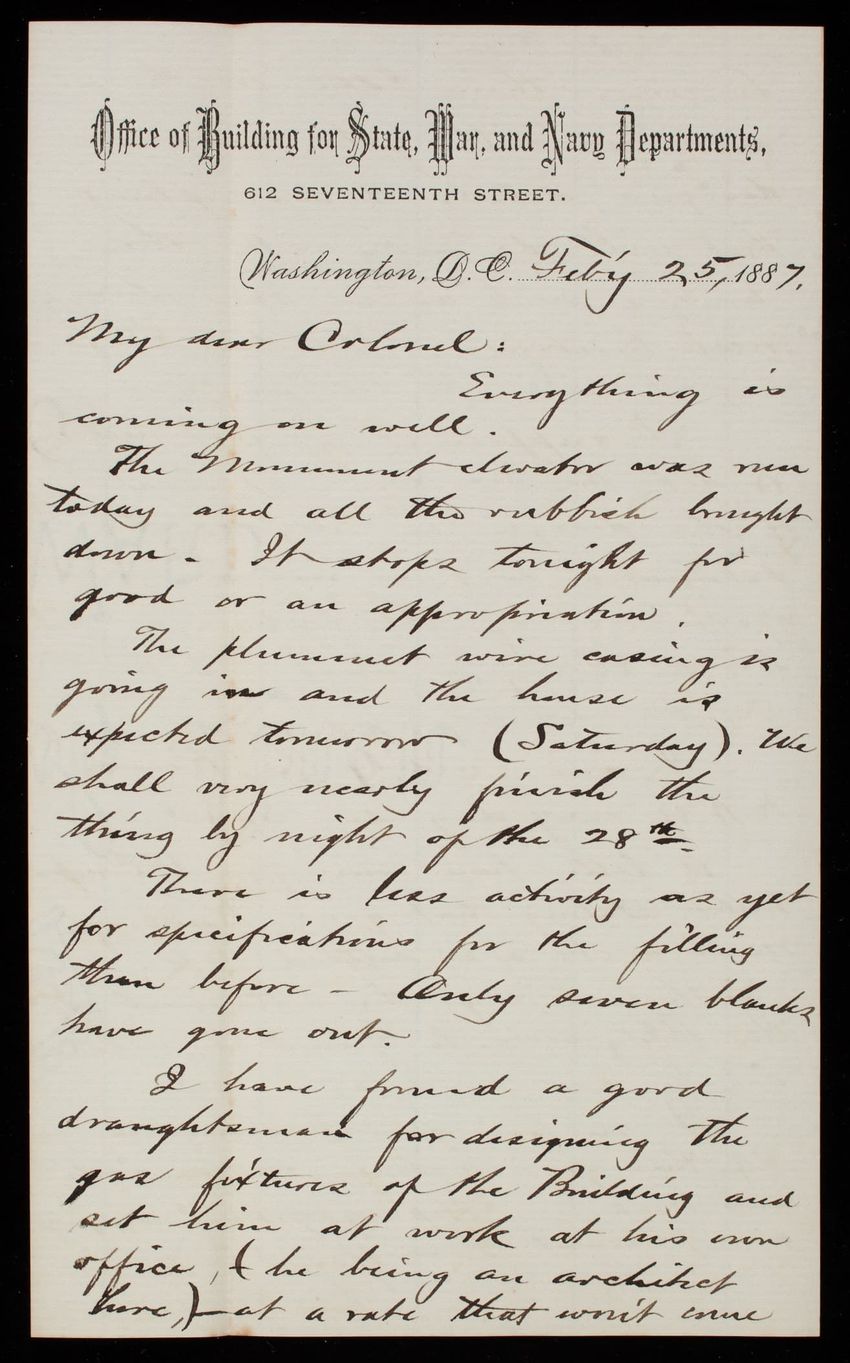 Office of Building for State, War, and Navy Departments,
612 SEVENTEENTH STREET.
Washington, D.C. Feb'y 25, 1887.
My dear Colonel:
Everything is
coming on well.
The Monument elevator was run
today and all the rubbish brought
down - It stops tonight for
good or an appropriation.
The plummet wire casing is
going in and the house is
expected tomorrow (Saturday). We
shall very nearly finish the
thing by night of the 28th.
There is less activity as yet
for specifications for the filling
than before - Only seven blanks
have gone out.
I have found a good
draughtsman for designing the
gas fixtures of the Building and
set him at work at his own
office, (he being an architect
here,) - at a rate that won't come